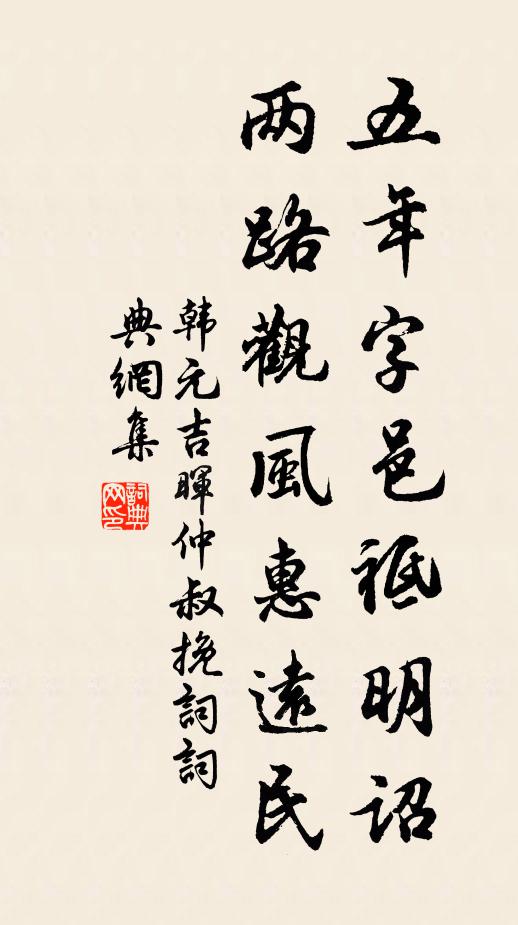 五年字邑祗明詔
两路觀風惠遠民
韩元吉暉仲叔挽詞詞
典網集
詞典網印